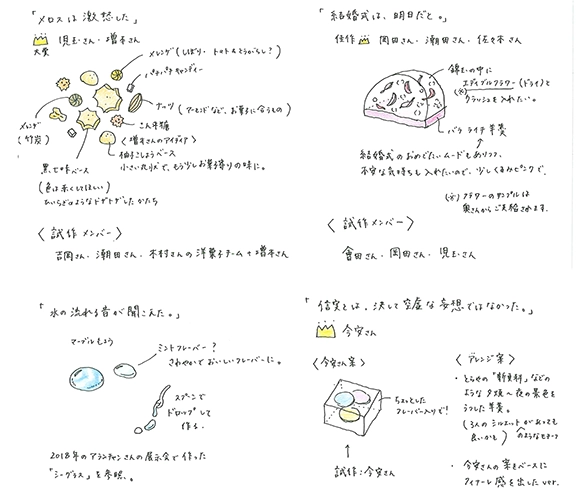 「メロスは激怒した」
大賞 児玉さん・増本さん
メレンゲ(しぼり・トマト&とうがらし?)
パチパチキャンディー
ナッツ(アーモンドなど、お菓子に合うもの)
こんぺい糖
メレンゲ
(竹炭)
〈増本さんのアイディア〉
柚子こしょうベース
小さい丸リズで、もう少しお菓子寄りの味に。
黒七味ベース
(色は赤くしてほしい)
ひいらぎのようなトゲトゲしたかたち
〈試作メンバー〉
吉岡さん・潮田さん・木村さんの洋菓子チーム+増本さん
「結婚式は、明日だと。」
佳作 岡田さん・潮田さん・佐々木さん
錦玉の中に
エディブルフラワー(ドライ)と
(※)
クラッシュを入れたい。
バラライチ羊羹
結婚式のおめでたいムードもありつつ、
不安な気持ちも入れたいので、少しくすみピンクで。
(※)フラワーのサンプルは
奥さんからご支給されます。
〈試作メンバー〉
會田さん・岡田さん・児玉さん
「水の流れる音が聞こえた。」
マーブルもよう
ミントフレーバー?
さわやかでおいしいフレーバーに。
スプーンで
ドロップして
作る。
2018年のアランチャンさんの展示会で作った
「シーグラス」を参照。
「信実とは、決して空虚な妄想ではなかった。」
今安さん
〈今安さん案〉
ちょっとした
フレーバー入りで!
試作:今安さん
〈アレンジ案〉
・とらやの「新更科」などの
ような夕焼〜夜の景色を
うつした羊羹。
(3人のシルエットがあっても
良いかも)
・今安さんの案をベースに
フィナーレ感を出したver.